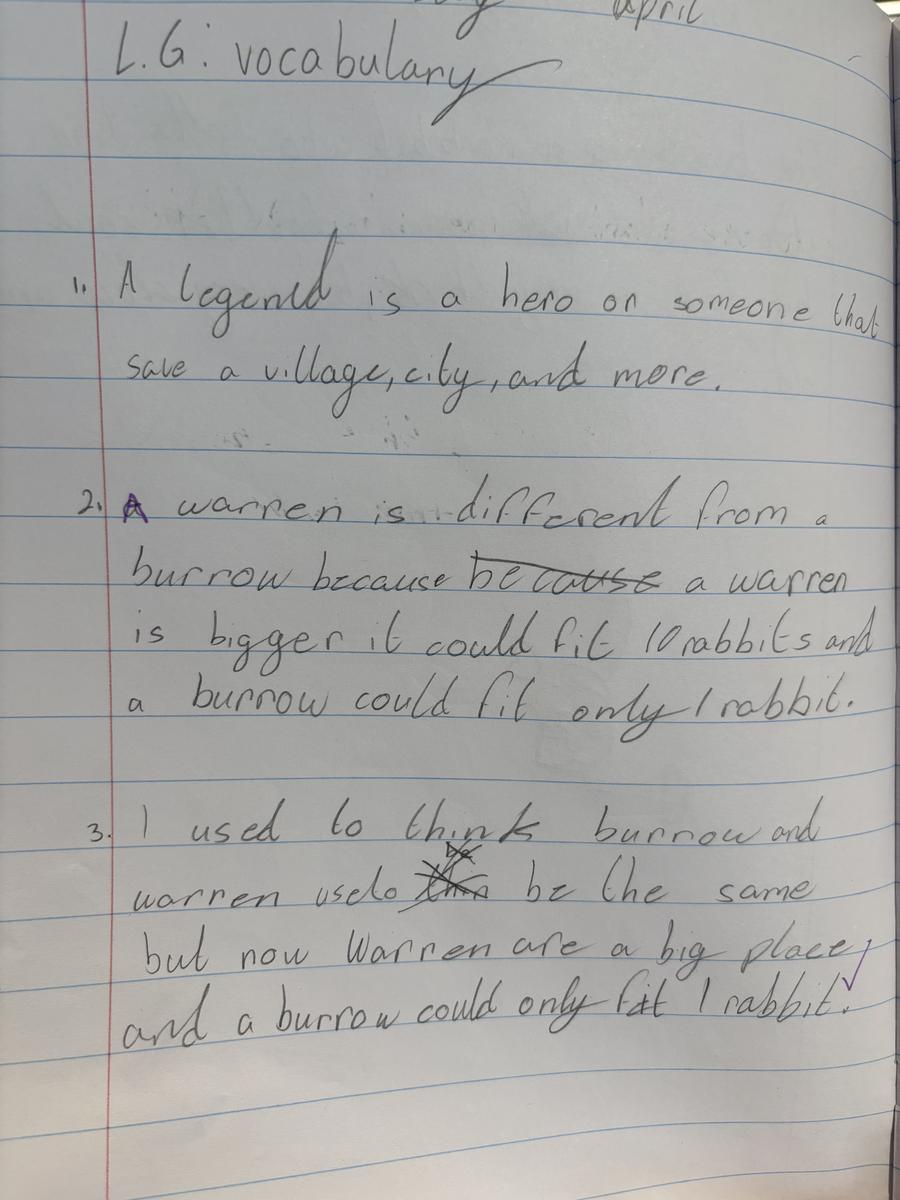 April
L.G: vocabulary
1. A legened is a hero or someone that
save a village, city, and more.
2. A warren is different from a
burrow because because a warren
is bigger it could fit 10 rabbits and
a burrow could fit only 1 rabbit.
3. I used to think burrow and
warren useto be the same
but now Warren are a big place
and a burrow could only fit 1 rabbit.